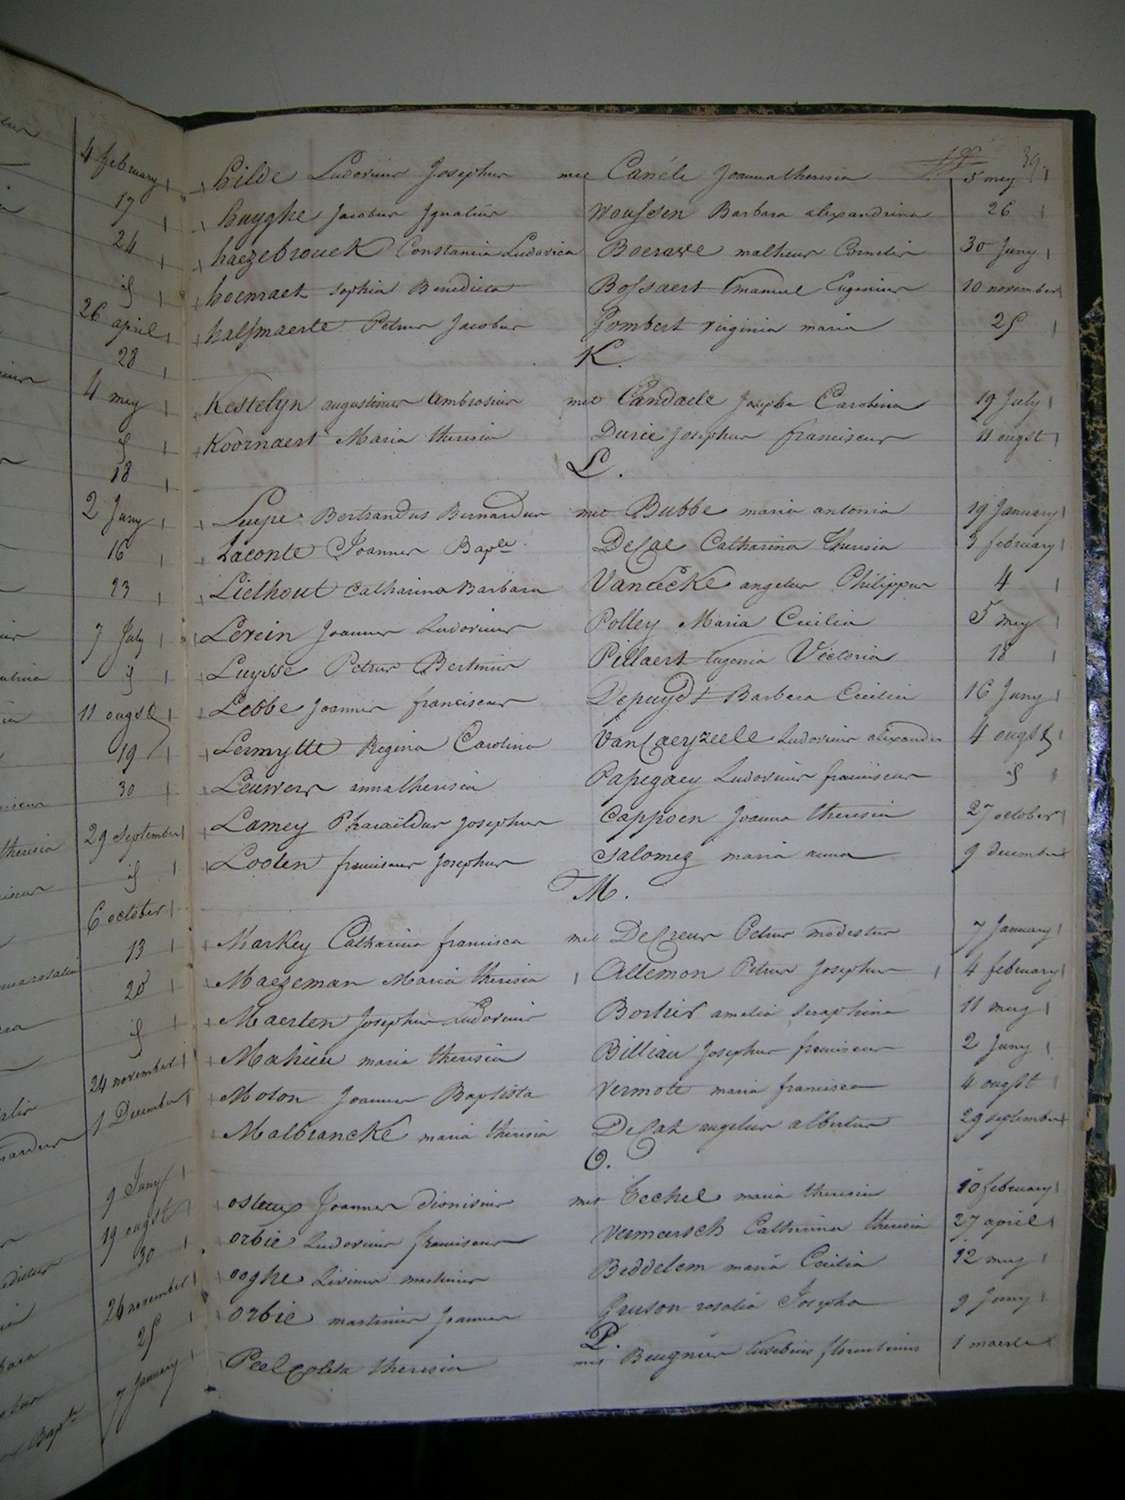 39
hilde Ludovicus Josephus met Canéle Joannatheresia 5 mey
huyghe Jacobus Ignatius Woussen Barbara alexandrina 26
haezebrouck Constantia Ludovica Boerave matheus Cornelis 30 Juny
hoenraet sophia Benedicta Bossaert Emanuel Eugenius 10 november
halsmaerte Petrus Jacobus Gombert virginia maria 25
K.
Kestelyn augustinus Ambrosius met Candaele Josepha Carolina 19 July
Koornaert Maria theresia Durie Josephus franciscus 11 ougst
L.
Luype Bertrandus Bernardus met Bubbe maria antonia 19 January
Laconte Joannes Bapte DeCae Catharina Theresia 3 february
Liethout Catharina Barbara Vandecke angelus Philippus 4
Lerein Joannes Ludovicus Polley Maria Cecilia 5 mey
Luysse Petrus Bertinus Pillaert Eugenia Victoria 18
Lebbe Joannes franciscus Depuydt Barbara Cecilia 16 Juny
Lermytte Regina Carolina VanCaeyzeele Ludovicus alexander 4 ougst
Leuwers annatheresia Papegaey Ludovicus franciscus
Lamey Pharaïldus Josephus Cappoen Joanna theresia 27 october
Looten franciscus Josephus Salomez maria anna 9 december
M.
Markey Catharina francisca met Petrus modestus 7 January
Maezeman Maria theresia Allemon Petrus Josephus 4 february
Maerten Josephus Ludovicus Bortier amelia Seraphina 11 mey
Mahieu maria theresia Billiau Josephus franciscus 2 Juny
Moton Joannes Baptista Vermote maria francisca 4 ougst
Malbrancke maria theresia angelus albertus 29 september
O.
osteux Joannes dionisius met Eechel maria theresia 10 february
orbie Ludovicus franciscus Vermersch Catharina theresia 27 april
ooghe Livinus martinus Beddelem maria Cecilia 12 mey
orbie martinus Joannes Gruson rosalia Josepha 9 Juny
P.
Peel theresia met Beugnier Eusebius florentinus 1 maerte
4 february
17
24
26 april
28
4 mey
18
2 Juny
16
23
7 July
11 ougst
19
30
29 september
6 october
13
20
24 november
1 December
9 Juny
19 ougst
30
26 november
25
7 January